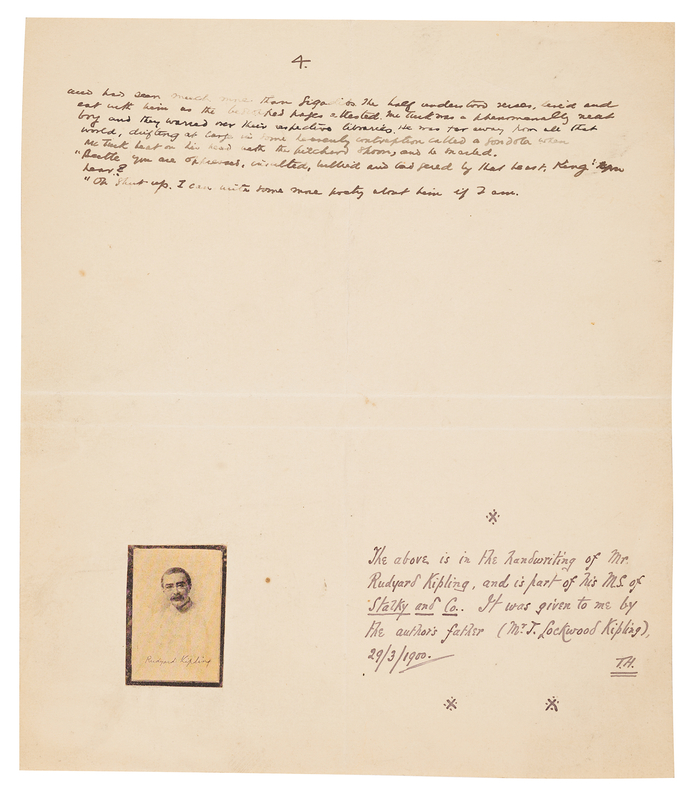 4.
and had seen much more than Gigadi so the half understood verses, lived and
eat with him as the be pages attested. Mc Turk was a phenomenally neat
boy and they warred over their respective libraries. He was far away from all that
world, drifting at large in some heavenly contraption called a gondola when
Mc Turk beat on his head with the pitchered and he snarled.
"Beetle you are oppressed, insulted, bullied and badgered by that beast, King.
hear?
"Oh shut up. I can write some more poetry about him if I am.
The above is in the handwriting of Mr.
Rudyard Kipling, and is part of his M.S. of
Stalky and Co.. It was given to me by
the author's father (Mr. J. Lockwood Kipling),
29/3/1900.
T.H.
Rudyard Kipling